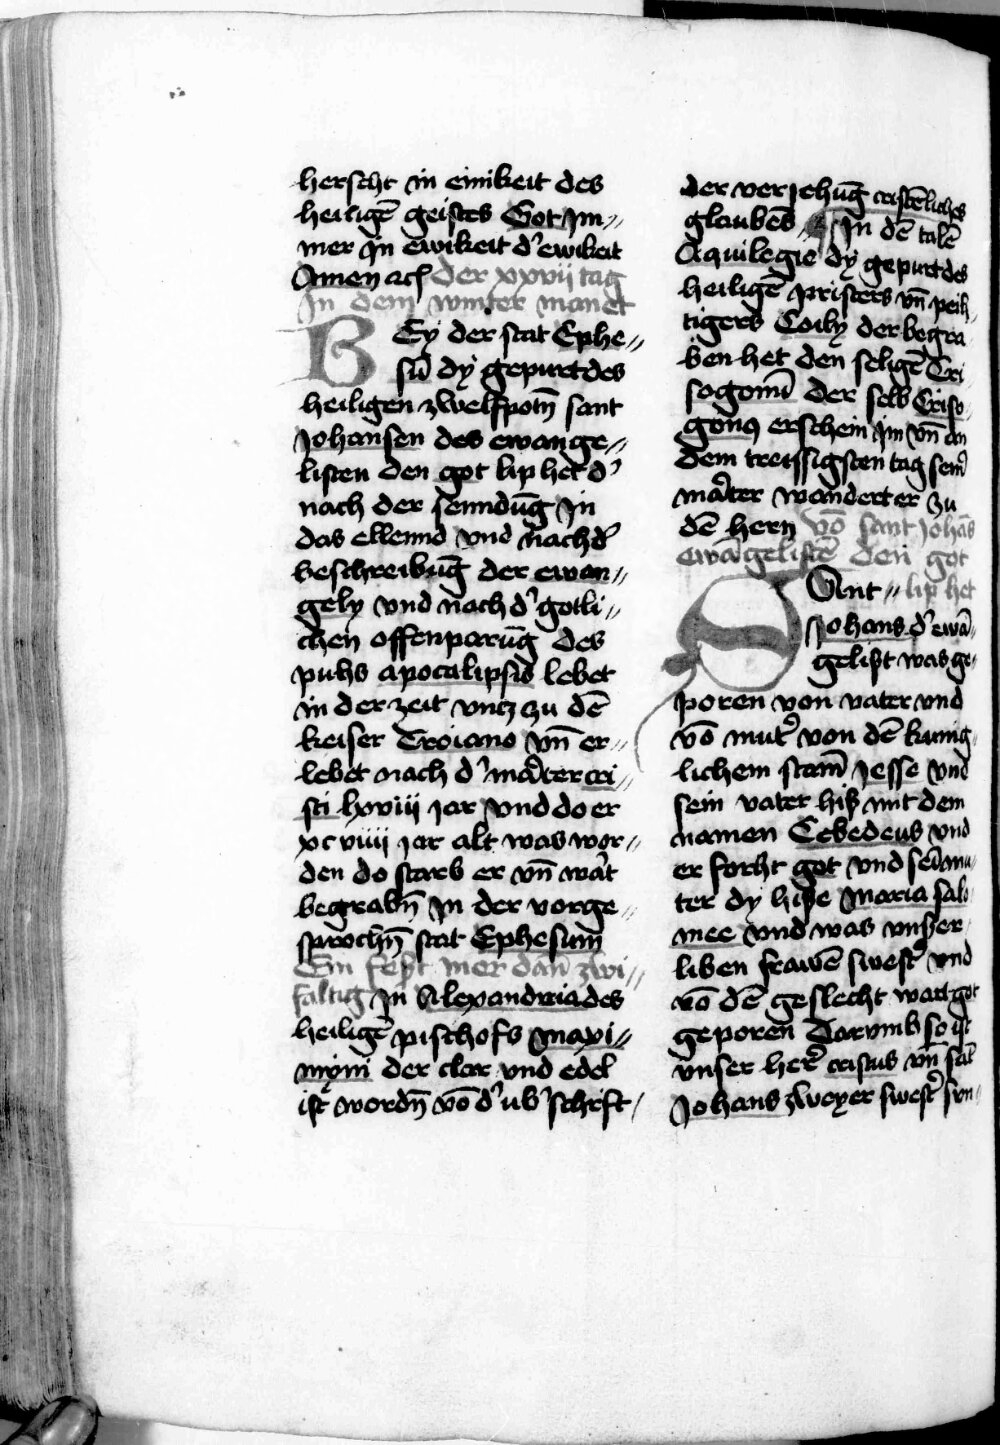 herscht in einikeit des
heiligē geistes Got Im⸗
mer Jn ewikeit d' ewikeit
Amen ac̄ der xxvij tag
In dem winter manet
BEy der stat Ephe⸗
sū dy gepurt des
heiligen zwelfpotn̄ sant
Johansen des ewange⸗
listen den got lip het d'
nach der senndūg Jn
das ellennd vnd nach d'
beschreibūg der ewan⸗
gely vnd nach d' gotli⸗
chen offenparūg des
puhs apocalipsis lebet
in der zeit vntz zu dē
keiser Troiano vn̄ er⸗
lebet nach d' mart̄er cri⸗
sti lxviij jar vnd do er
xcviiij jar alt was wor⸗
den do starb er vn̄ wart
begrabn̄ Jn der vorge⸗
sprochn̄ stat Ephesum
Ein fest mer dan̄ zwi⸗
faltig Jn Alexandria des
heiligē pischofs maxi⸗
mini der clar vnd edel
ist wordn̄ vō d' ub'schrift
der verjehūg cristēliches
glaubēs Jn dē talē
Aquilegie dy gepurt des
heiligē pristers vn̄ peih⸗
tigers Coily der begra⸗
ben het den seligē Cri⸗
sogonū der selb Criso⸗
gonꝯ erschein im vn̄ an
dem treissigsten tag sein'
mart̄er wandert er zu
dē hern vō sant Johās
ewāgelistē den got
SAnt⸗ lip het
Johans d' ewā⸗
gelist was ge⸗
poren von vater vnd
vō mut' von dē kunig⸗
lichem stam̄ Jesse vnd
sein vater hiß mit dem
namen Cebedeus vnd
er forcht got vnd sein mu⸗
ter dy hiße maria salo⸗
mee vnd was vnser
liben frawē swest' vnd
vō dē geslecht wart got
geporen Darvmb so ist
vnser her' cristus vn̄ sāt
Johans zweyer swest' sun